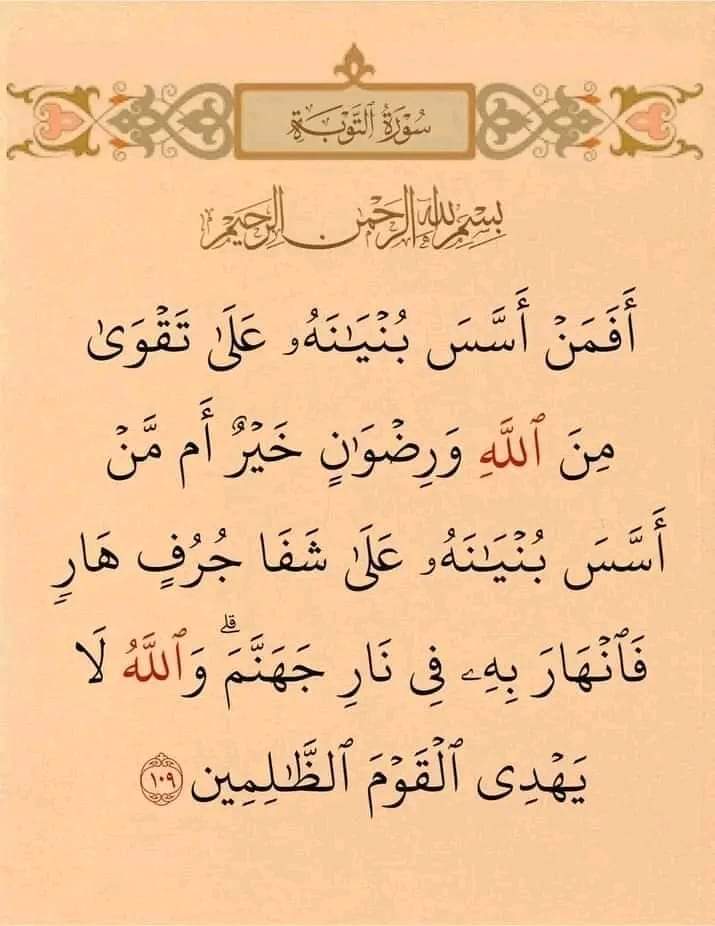 سُورَةُ ٱلتَّوْبَةِ
بِسْمِ ٱللَّهِ ٱلرَّحْمَٰنِ ٱلرَّحِيمِ
أَفَمَنْ أَسَّسَ بُنْيَٰنَهُۥ عَلَىٰ تَقْوَىٰ
مِنَ ٱللَّهِ وَرِضْوَٰنٍ خَيْرٌ أَم مَّنْ
أَسَّسَ بُنْيَٰنَهُۥ عَلَىٰ شَفَا جُرُفٍ هَارٍ
فَٱنْهَارَ بِهِۦ فِى نَارِ جَهَنَّمَ ۗ وَٱللَّهُ لَا
يَهْدِى ٱلْقَوْمَ ٱلظَّٰلِمِين ١٠٩